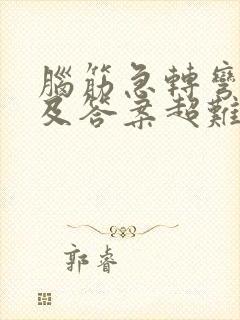 腦筋急轉彎
及答案超難
郭睿